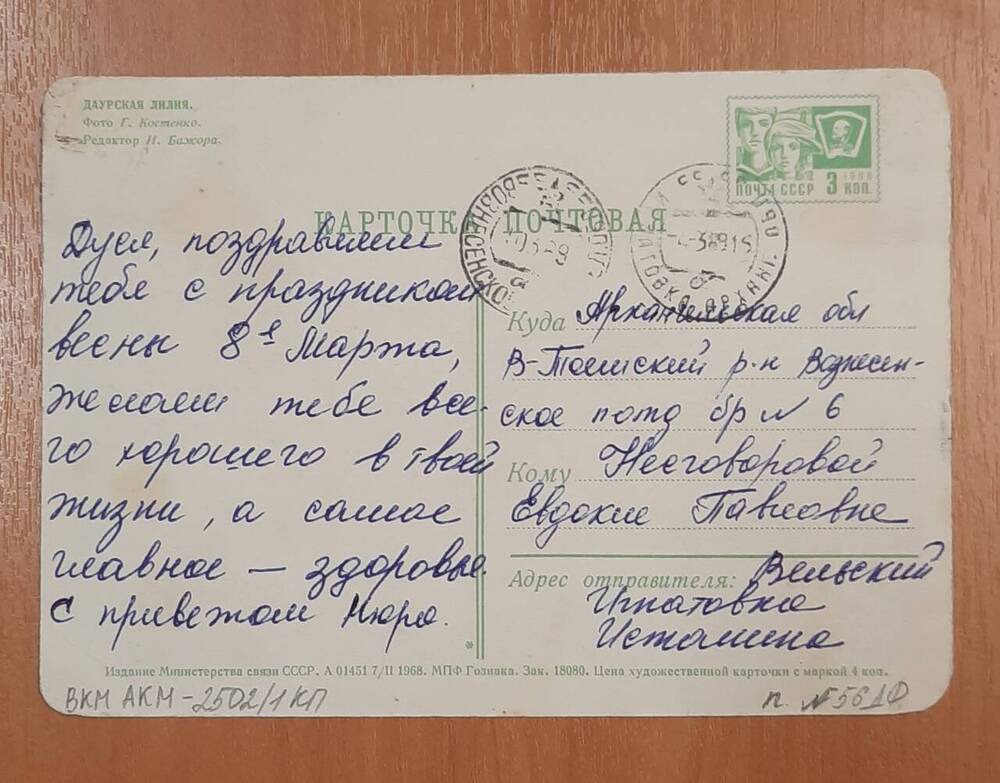 ДАУРСКАЯ ЛИЛИЯ.
Фото Г. Костенко.
Редактор И. Бажора.
ПОЧТА СССР 3 КОП.
1966
КАРТОЧКА ПОЧТОВАЯ
Дуся, поздравляем
тебя с праздником
весны 8ое Марта,
желаем тебе все-
го хорошего в твоей
жизни, а самое
главное — здоровье.
С приветом Нюра.
*
Куда Архангельская обл
В-Тоемский р-н Вознесен-
ское п
бр № 6
Кому Несговоровой
Евдокие Павловне
Адрес отправителя: Вельский
Игнатовка
Истомина
Издание Министерства связи СССР. А 01451 7/II 1968. МПФ Гознака. Зак. 18080. Цена художественной карточки с маркой 4 коп.
ВКМ АКМ-2502/1 КП
п. №56ДФ